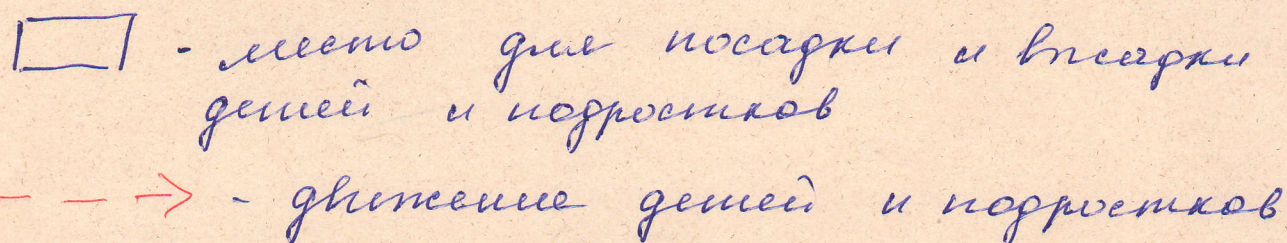 - место для посадки и высадки
детей и подростков
- движение детей и подростков